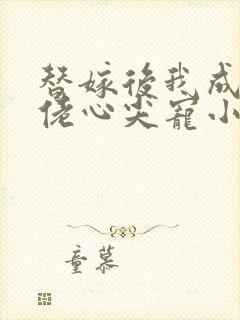 替嫁後我成
佬心尖寵小
童慕